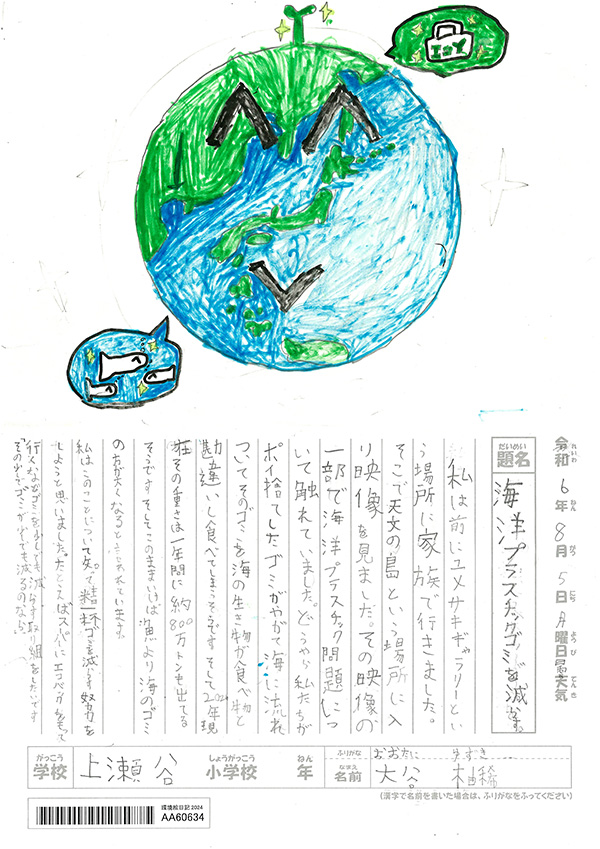 エコ
令和6年8月5日月曜日 天気
れいわ ねん がつ にち ようび てんき
だいめい
題名
海洋プラスチックゴミを減らす。
私は前にユメサキギャラリーとい
う場所に家族で行きました。
そこで天文の島という場所に入
り映像を見ました。その映像の
一部で海洋プラスチック問題につ
いて触れていました。どうやら私たちが
ポイ捨てしたゴミがやがて海に流れ
ついてそのゴミを海の生き物が食べ物と
勘違いし食べてしまうそうです。そして2024年現
在その重さは一年間に約800万トンも出てる
そうです。そしてこのままいけば魚より海のゴミ
のが大くなると言われています。
私はこのことについて知って精一杯ゴミを減らす努力を
しようと思いました。たとえばスーパーにエコバッグをもって
行くなどゴミを少しでも減らす取り組をしたいです
「その少でゴミが少しでも減るのなら」
がっこう
学校
上瀬谷
しょうがっこう
小学校
ねん
年
ふりがな
おおたに ゆずき
なまえ
名前
大谷 柚稀
(漢字で名前を書いた場合は、ふりがなをふってください)
環境絵日記2024
AA60634